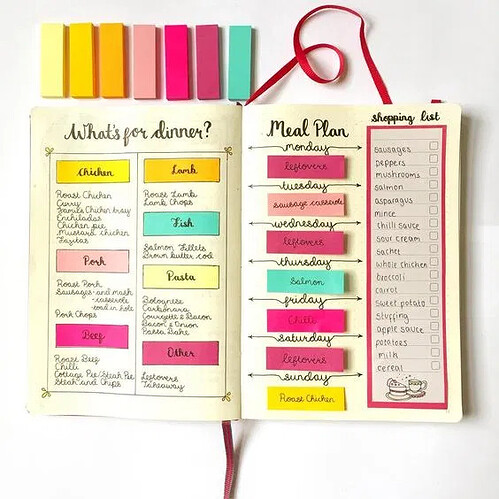 What's for dinner?
Chicken
Roast Chicken
Curry
Jamie Chicken tray
Enchiladas
Chicken pie
Mustard chicken
Fajitas
Pork
Roast Pork
Sausages - and mash
- casserole
- toad in hole
Pork Chops
Beef
Roast Beef
Chilli
Cottage Pie/Steak Pie
Steak and Chips
Lamb
Roast Lamb
Lamb Chops
Fish
Salmon Fillets
Brown butter cod
Pasta
Bolognese
Carbonara
Courgette & Bacon
Bacon & Onion
Pasta Bake
Other
Leftovers
Takeaway
Meal Plan
monday
leftovers
tuesday
sausage casserole
wednesday
leftovers
thursday
Salmon
friday
Chilli
saturday
leftovers
sunday
Roast Chicken
shopping list
sausages
peppers
mushrooms
salmon
asparagus
mince
chilli sauce
sour cream
sachet
whole chicken
broccoli
carrot
sweet potato
stuffing
apple sauce
potatoes
milk
cereal